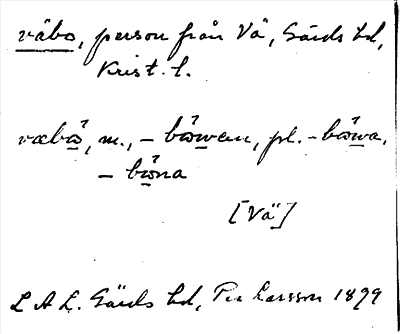 väbo, person från Vä, Gärds hd,
Krist. l.
væbω̲̉, m., – bω̲̉wen, pl. – bω̲̉wa,
– bω̲̉na
[Vä]
L A L. Gärds hd, Per Larsson 1899